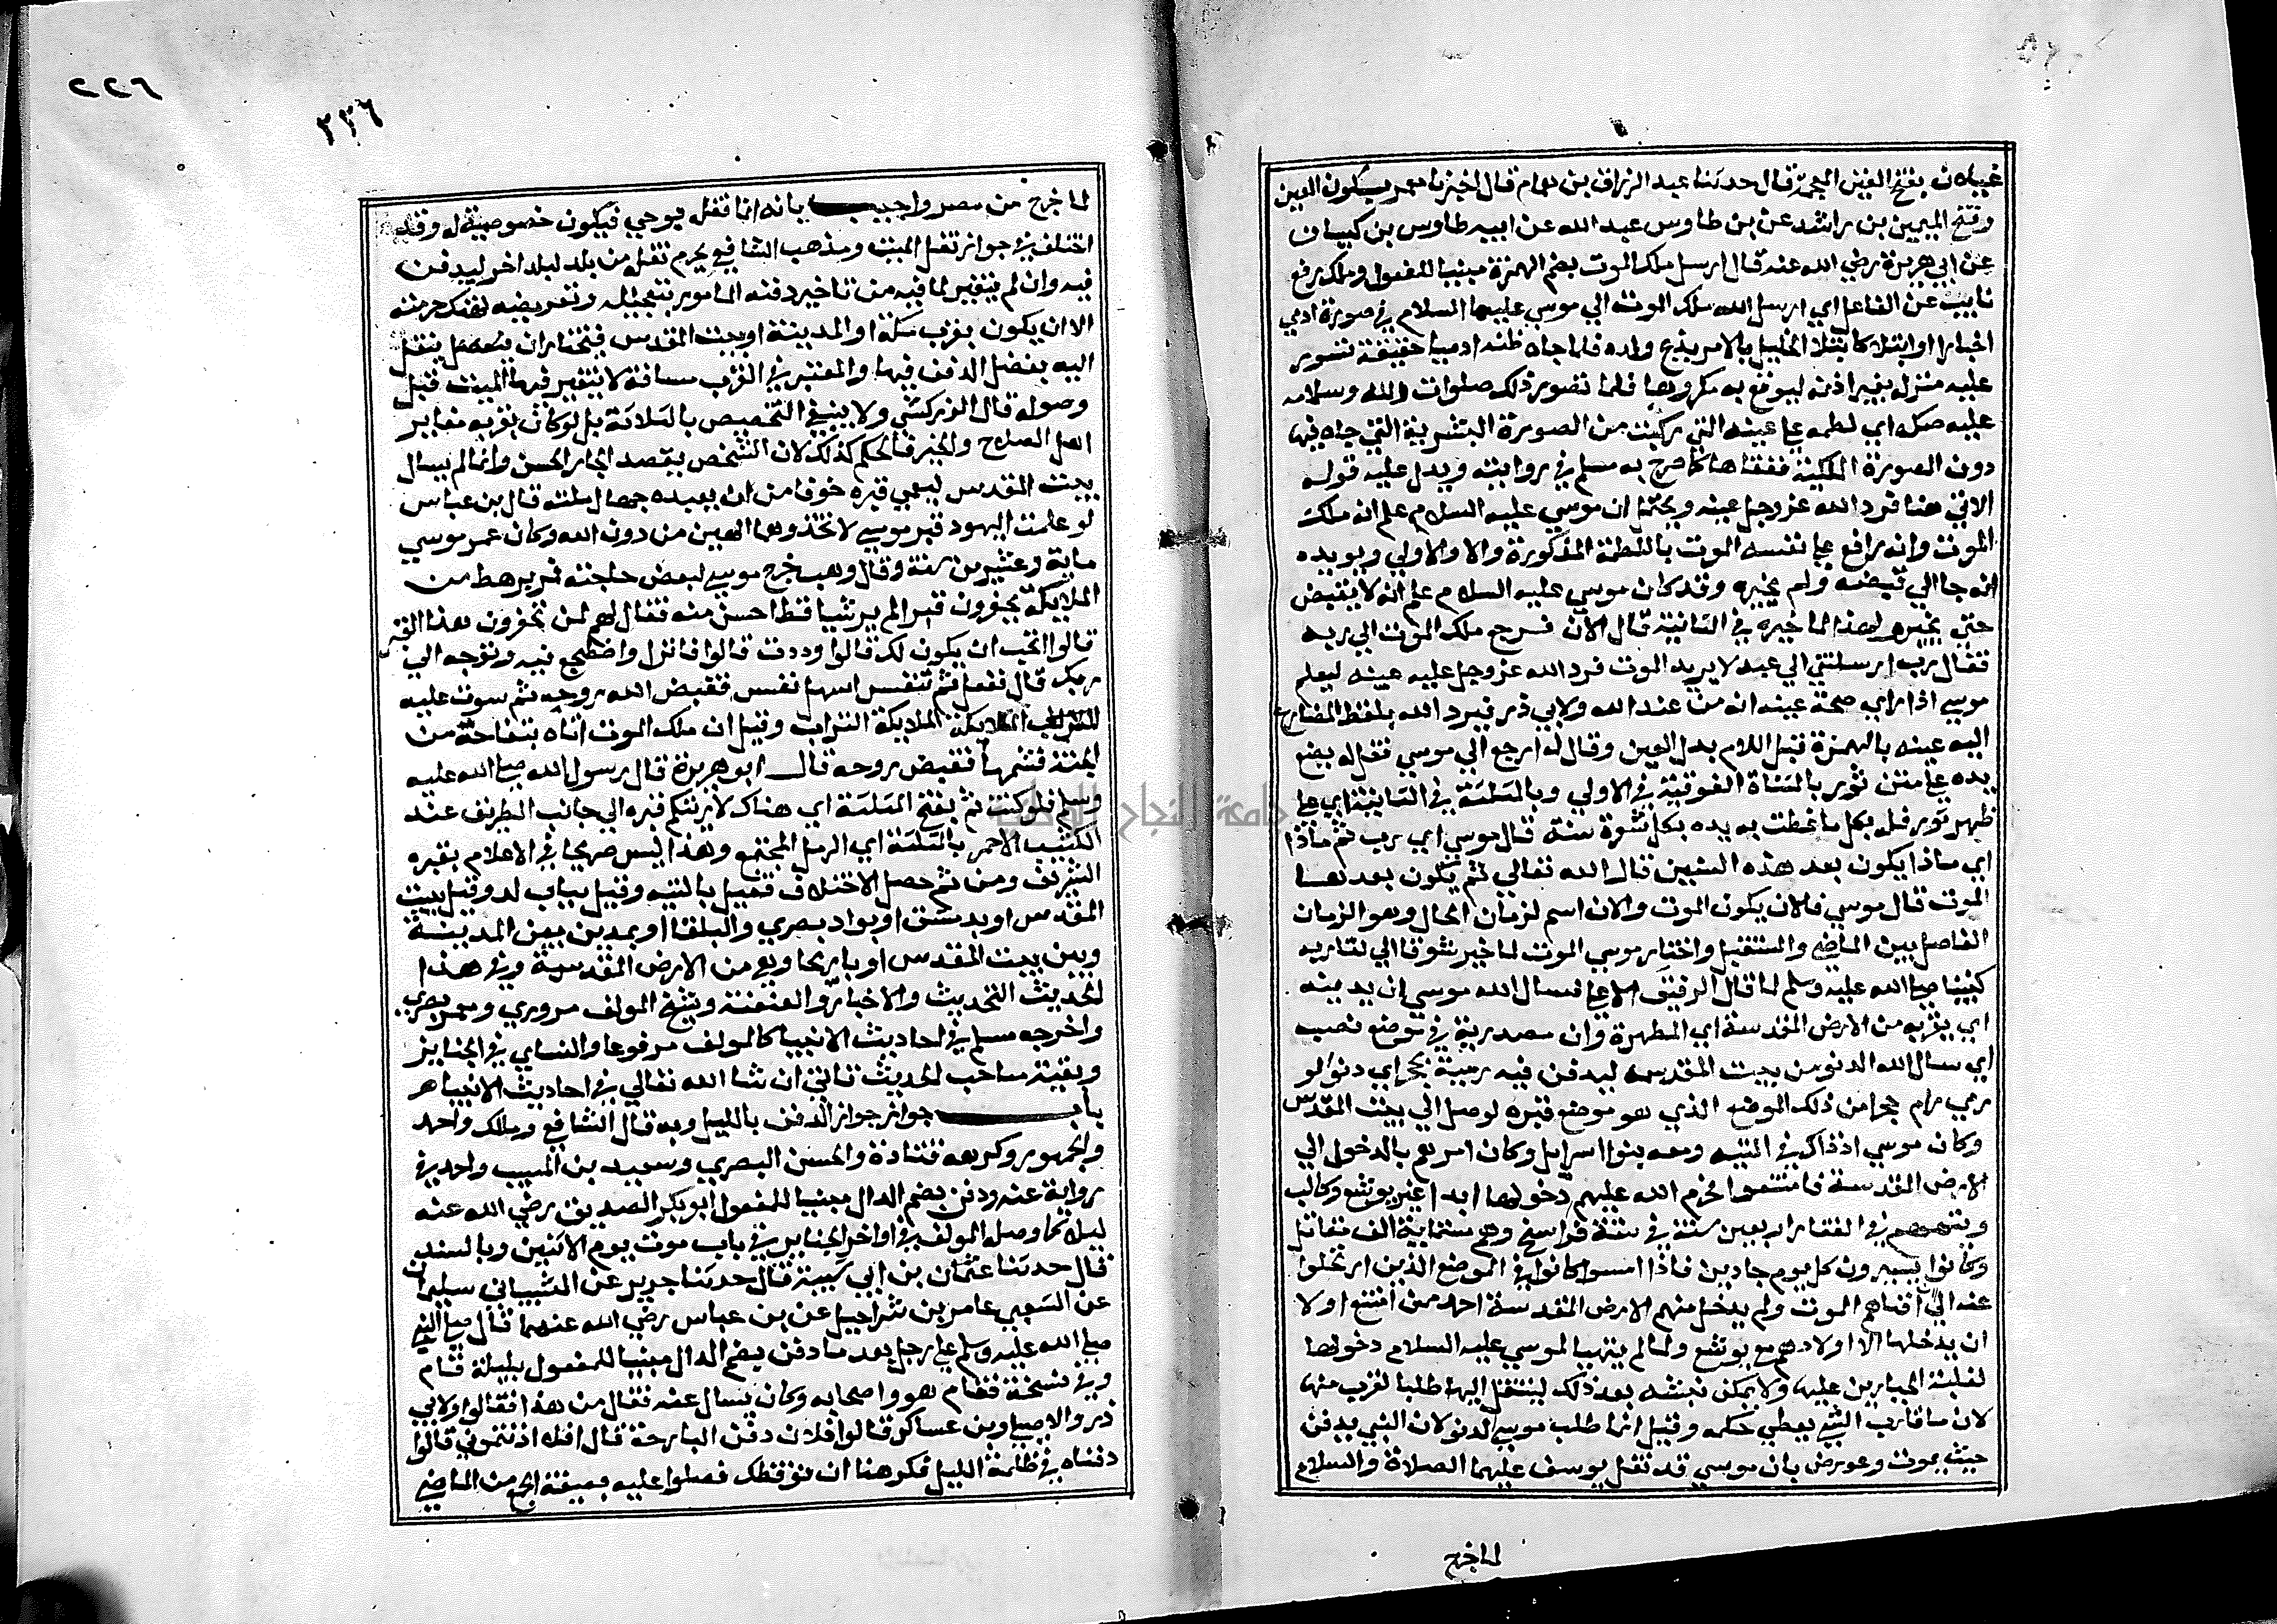 غيلان بفتح الغين المعجمة قال حدثنا عبد الرزاق بن همام قال اخبرنا معمر بسكون العين
وفتح الميمين بن راشد عن بن طاوس عبد الله عن ابيه طاوس بن كيسان
عن ابي هريرة رضي الله عنه قال ارسل ملك الموت بضم الهمزة مبنيا للمفعول وملك رفع
نايب عن الفاعل اي ارسل الله ملك الموت الي موسي عليهما السلام في صورة ادمي
اختبارا وابتلا كابتلا الخليل بالامر بذبح ولده فلما جاه ظنه ادميا حقيقة تسور
عليه منزله بغير اذنه ليوقع به مكروها فلما تصور ذلك صلوات الله وسلامه
عليه صكه اي لطمه علي عينه التي ركبت من الصورة البشرية التي جاه فيها
دون الصورة الملكية ففقاها كما صرح به مسلم في روايته ويدل عليه قوله
الاتي هنا فرد الله عز وجل عينه ويحتمل ان موسي عليه السلام علم انه ملك
الموت وانه دافع عن نفسه الموت باللطمة المذكورة والاول اولي ويويده
انه جا الي قبضه ولم يخيره وقد كان موسي عليه السلام علم انه لا يقبض
حتي يخير ولهذا لما خيره في الثانية قال الآن فرجع ملك الموت الي ربه
فقال رب ارسلتني الي عبد لا يريد الموت فرد الله عز وجل عليه عينه ليعلم
موسي اذا راي صحة عينه انه من عند الله ولابي ذر فيرد الله بلفظ المضارع
اليه عينه بالهمزة قبل اللام بدل العين وقال له ارجع الي موسي فقل له يضع
يده علي متن ثور بالمثناة الفوقية في الاولي وبالمثلثة في الثانية اي علي
ظهر ثور فله بكل ما غطت به يده بكل شعرة سنة قال موسي اي رب ثم ماذا
اي ماذا يكون بعد هذه السنين قال الله تعالي ثم يكون بعدها
الموت قال موسي فالان يكون الموت والان اسم لزمان الحال وهو الزمان
الفاصل بين الماضي والمستقبل واختار موسي الموت لما خير شوقا الي لقا ربه
كنبينا صلي الله عليه وسلم لما قال الرفيق الاعلي فسال الله موسي ان يدنيه
اي يقربه من الارض المقدسة اي المطهرة وان مصدرية في موضع نصب
اي سال الله الدنو من بيت المقدس ليدفن فيه رمية بحجر اي دنوا لو
رمي رام حجرا من ذلك الموضع الذي هو موضع قبره لوصل الي بيت المقدس
وكان موسي اذ ذاك في التيه ومعه بنوا اسرايل وكان امرهم بالدخول الي
الارض المقدسة فامتنعوا فحرم الله عليهم دخولها ابدا غير يوشع وكالب
في القفار اربعين سنة في ستة فراسخ وهم ستماية الف مقاتل
وكانوا يسيرون كل يوم جادين فاذا امسوا كانوا في الموضع الذين ارتحلوا
عنه الي ان افناهم الموت ولم يدخل منهم الارض المقدسة احد ممن امتنع اولا
ان يدخلها الا اولادهم مع يوشع ولما لم يتهيا لموسي عليه السلام دخولها
لغلبة الجبارين عليها ولا يمكن نبشه بعد ذلك لينتقل اليها طلبا لقرب منها
لان ما قارب الشي يعطي حكمه وقيل انما طلب موسي الدنو لان النبي يدفن
حيث يموت وعورض بان موسي قد نقل يوسف عليهما الصلاة والسلام
لما خرج
٢٢٦
٢٣٦
لما خرج من مصر واجيب بانه انما نقله بوحي فيكون خصوصية له وقد
اختلف في جواز نقل الميت ومذهب الشافعي يحرم نقله من بلد لبلد اخر ليدفن
فيه وان لم يتغير لما فيه من تاخير دفنه المامور بتعجيله وتعريضه لهتك حرمته
الا ان يكون بقرب مكة او المدينة او بيت المقدس فيختار ان ينقل
اليه بفضل الدفن فيها والمعتبر في القرب مسافة لا يتغير فيها الميت قبل
وصوله قال الزركشي ولا ينبغي التخصيص بالثلاثة بل لو كان بقربه مقابر
اهل الصلاح والخير فالحكم كذلك لان الشخص يقصد الجار الحسن وانما لم يسال
بيت المقدس ليعمي قبره خوفا من ان يعبده جهال ملته قال بن عباس
لو علمت اليهود قبر موسي لاتخذوهما الهين من دون الله وكان عمر موسي
ماية وعشرين سنة وقال وهب خرج موسي لبعض حاجته فمر برهط من
الملايكة يحفرون قبرا لم ير شيا قط احسن منه فقال لهم لمن تحفرون هذا القبر
قالوا اتحب ان يكون لك قال وددت قالوا فانزل واضطجع فيه وتوجه الي
ربك قال ففعل ثم تنفس اسهل نفس فقبض الله روحه ثم سوت عليه
الملايكة التراب وقيل ان ملك الموت اتاه بتفاحة من
الجنة فشمها فقبض روحه قال ابو هريرة قال رسول الله صلي الله عليه
وسلم فلو كنت ثم بفتح المثلثة اي هناك لاريتكم قبره الي جانب الطريق عند
الكثيب الاحمر بالمثلثة اي الرمل المجتمع وهذا ليس صريحا في الاعلام بقبره
الشريف ومن ثم حصل الاختلاف فقيل بالتيه وقيل بباب لد وقيل ببيت
المقدس او بدمشق او بواد بصري والبلقا او بمدين بين المدينة
وبين بيت المقدس او باريحا وهي من الارض المقدسة وفي هذا
الحديث التحديث والاخبار والعنعنة وشيخ المولف مروزي ومعمر بصري
واخرجه مسلم في احاديث الانبيا كالمولف مرفوعا والنساي في الجنايز
وبقية مباحث الحديث تاتي ان شا الله تعالي في احاديث الانبيا هر
باب جواز جواز الدفن بالليل وبه قال الشافعي ومالك واحمد
والجمهور وكرهه قتادة والحسن البصري وسعيد بن المسيب واحمد في
رواية عنه ودفن بضم الدال مبنيا للمفعول ابو بكر الصديق رضي الله عنه
ليلا كما وصله المولف في اواخر الجنايز في باب موت يوم الاثنين وبالسند
قال حدثنا عثمان بن ابي شيبة قال حدثنا جرير عن الشيباني سليمان
عن الشعبي عامر بن شراحيل عن بن عباس رضي الله عنهما قال صلي النبي
صلي الله عليه وسلم علي رجل بعد ما دفن بضم الدال مبنيا للمفعول بليلة قام
وفي نسخة فقام هو واصحابه وكان يسال عنه فقال من هذا فقالوا ولابي
ذر والاصيلي وبن عساكر قالوا فلان دفن البارحة قال افلا اذنتموني قالوا
دفناه في ظلمة الليل فكرهنا ان نوقظك فصلوا عليه بصيغة الجمع من الماضي